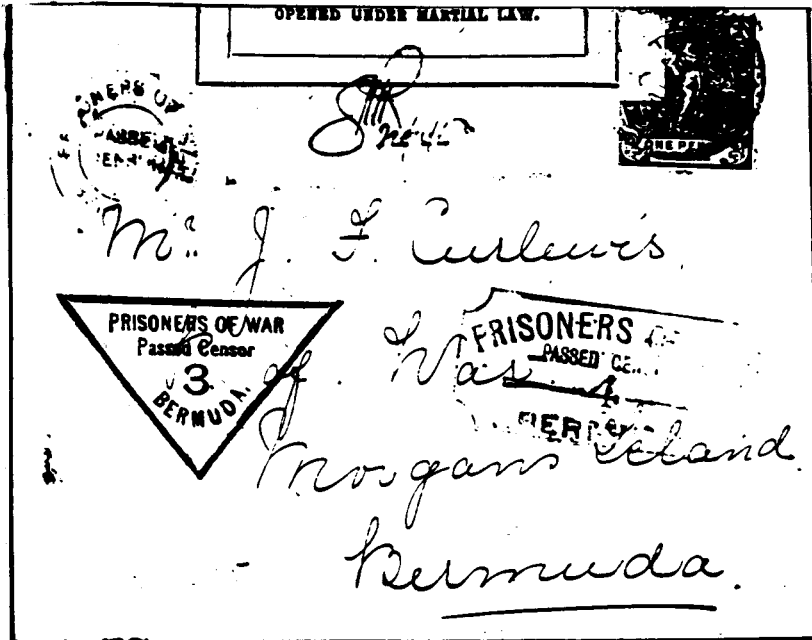 OPENED UNDER MARTIAL LAW.
ONERS OF
PASSED
ONE PEN
Mr. J. F. Curlewis
PRISONERS OF WAR
Passed Censor
3
BERMUDA.
PRISONERS OF
PASSED CE
4
BER
of War
Morgans Island
Bermuda.